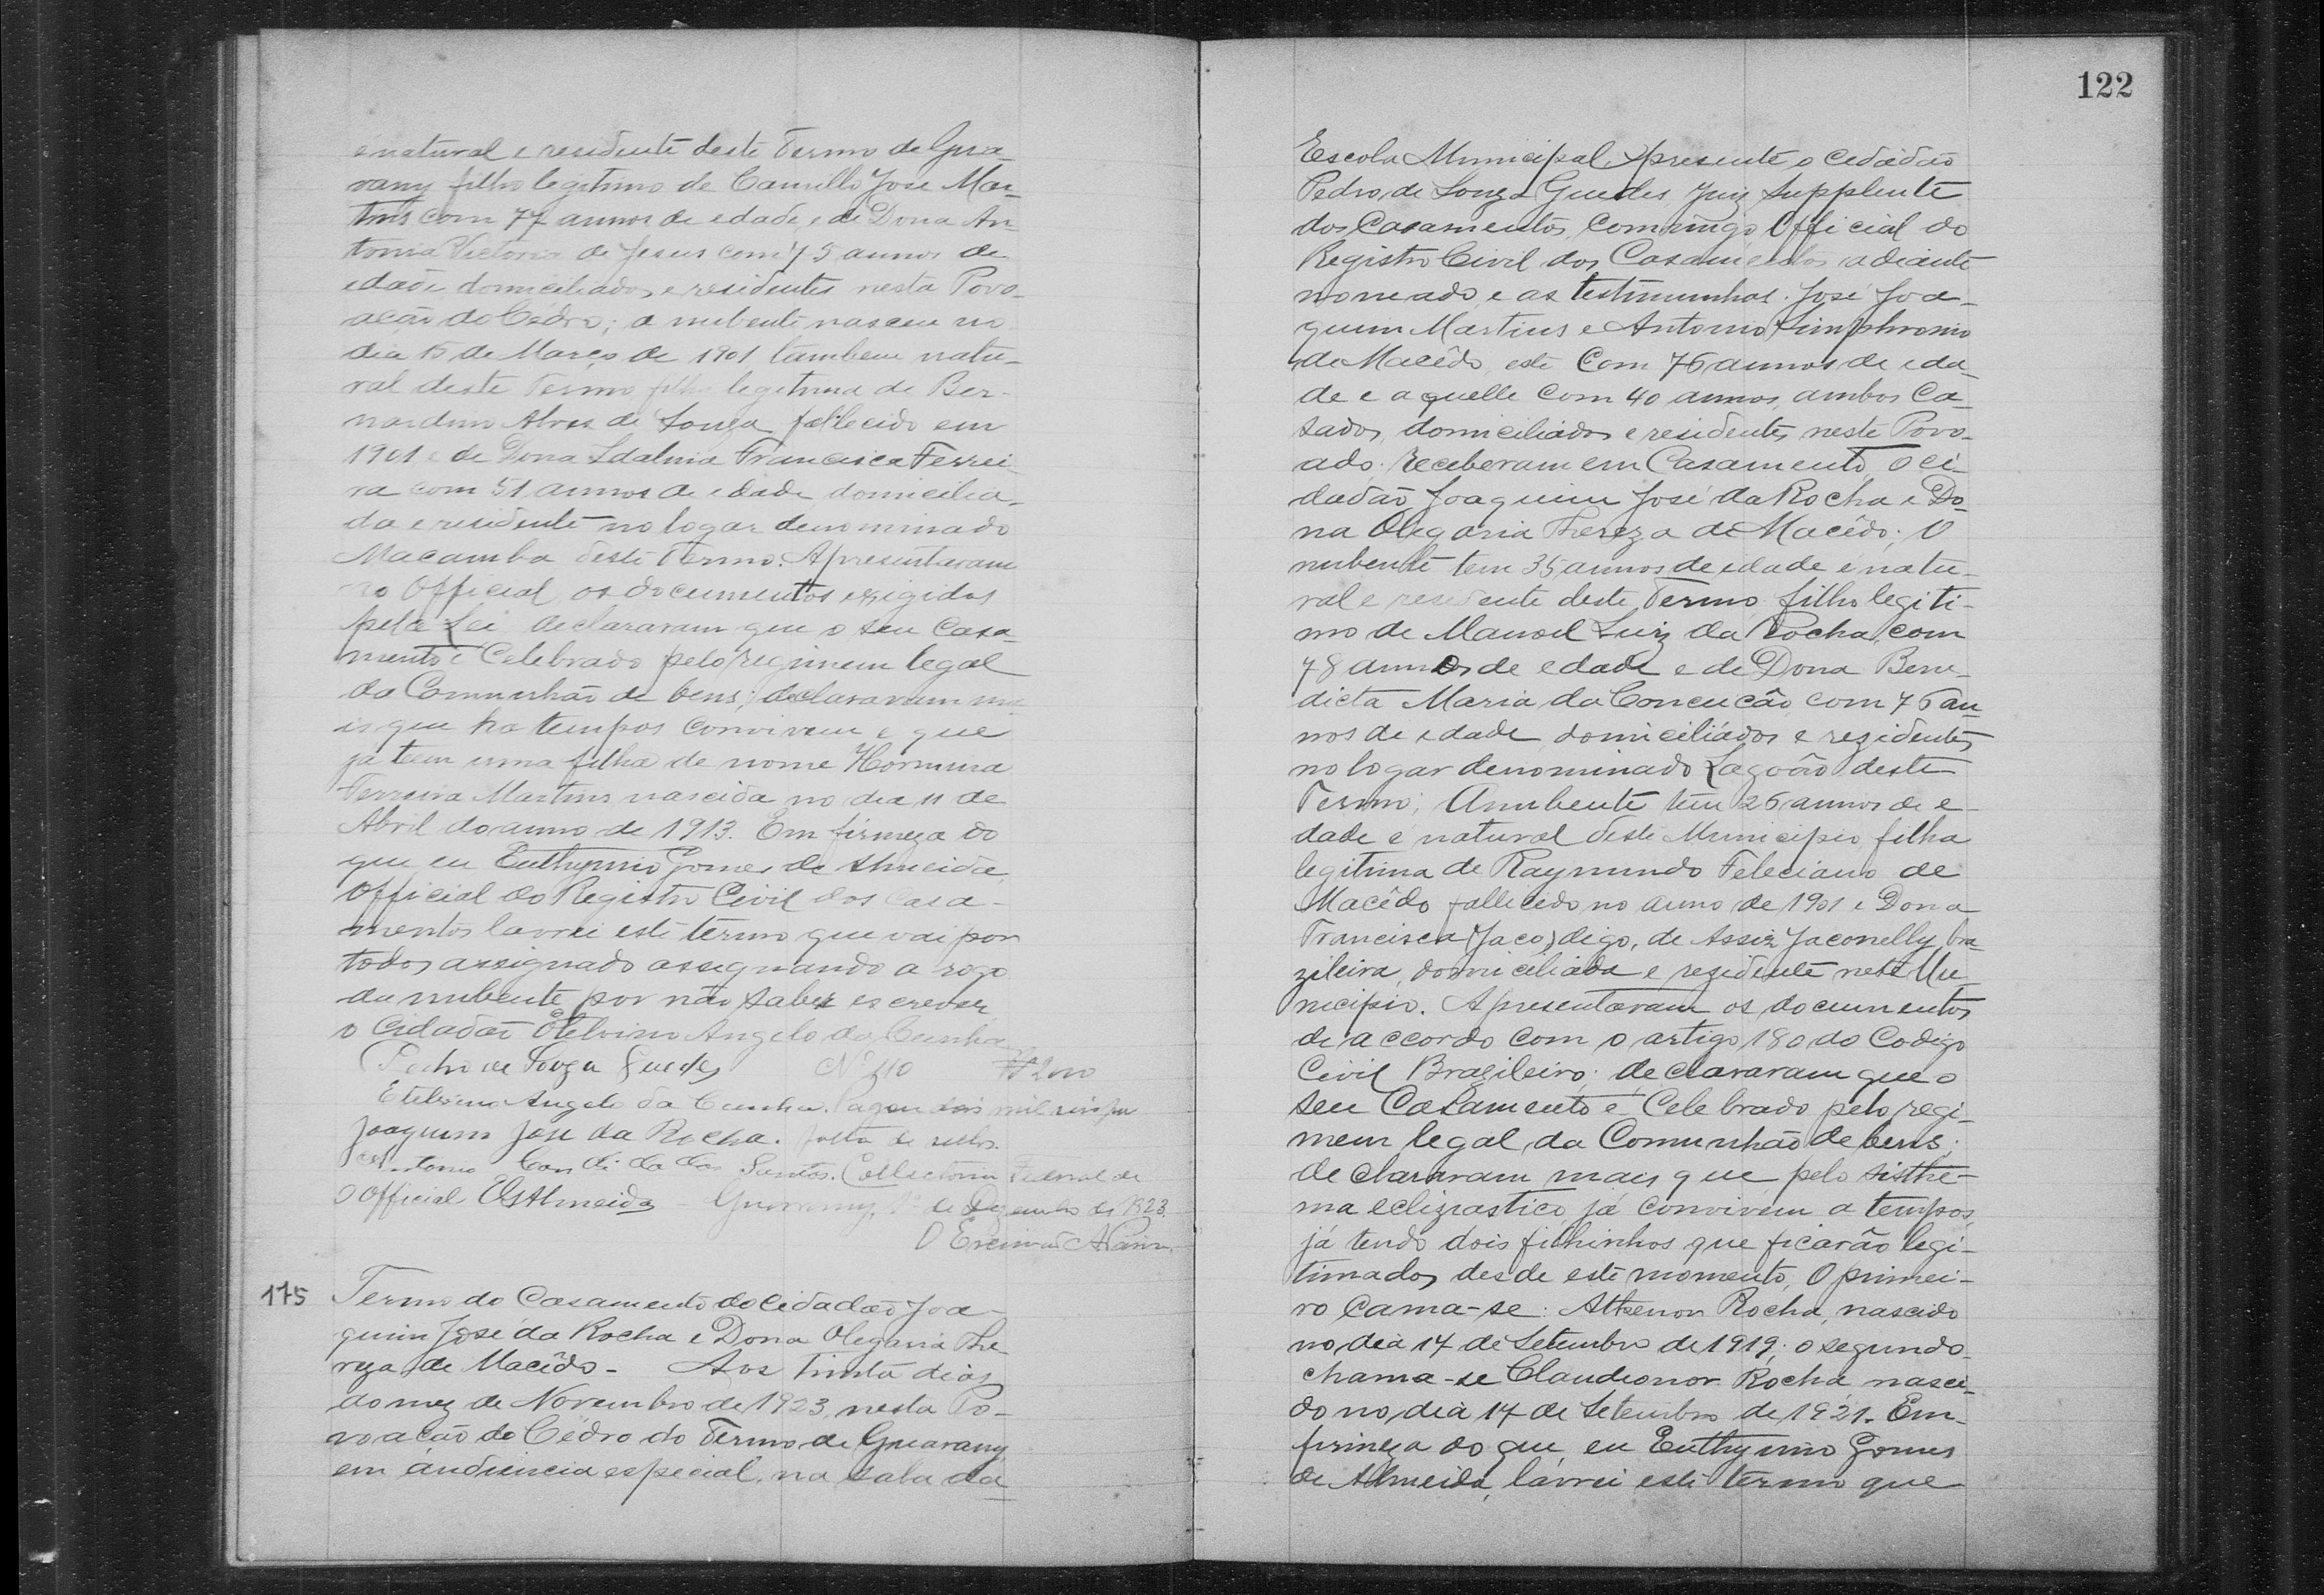 é natural e residente deste Termo de Gua-
rany filho legitimo de Camillo José Mar-
tins com 77 annos de edade, e de Dona An-
tonia Victoria de Jesus com 75 annos de
edade domiciliados e residentes nesta Povo-
ação do Cédro; a nubente nasceu no
dia 15 de Março de 1901 tambem natu-
ral deste Termo filha legitima de Ber-
nardino Alves de Souza fallecido em
1901 e de Dona Idalina Francisca Ferrei-
ra com 51 annos de edade domicilia-
da e residente no logar denominado
Macamba deste Termo. Apresentaram
ao Official os documentos exigidos
pela Lei declararam que o seu Casa-
mento é Celebrado pelo regimem legal
da Comunhão de bens; declararam ma
is que ha tempos convivem e que
já tem uma filha de nome Hormina
Ferreira Martins nascida no dia 11 de
Abril do anno de 1913. Em firmeza do
que eu Euthymio Gomes de Almeida
Official do Registro Civil dos Casa-
mentos lavrei este termo que vai por
todos assignado assegnando a rogo
da nubente por não saber escrever
o Cidadão Etelvino Angelo da Cunha
Pedro de Souza Guedes Nº 210 2000
Etelvino Angelo da Cunha. Pagou dois mil reis por
Joaquim José da Rocha. falta de sellos.
Antonio Candido dos Santos. Collectoria Federal de
O Official EGAlmeida Guarany, 1º de Dezembro de 1923.
O Escrivão
175 Termo do Casamento do Cidadão Joa-
quim José da Rocha e Dona Olegaria The-
reza de Macêdo- Aos trinta dias
do mez de Novembro de 1923, nesta Po-
voação do Cédro do Termo de Guarany
em audiencia especial, na sala da
122
Escola Municipal, presente o Cedadão
Pedro de Souza Guedes Juiz Supplente
dos Casamentos, commigo Official do
Registro Civil dos Casamentos adiante
nomeado, e as testimunhas. José Joa-
quim Martins e Antonio Simphronio
de Macêdo, este Com 76 annos de eda-
de e aquelle Com 40 annos, ambos Ca-
sados, domiciliados e residentes neste Povo-
ado. receberam em Casamento, o ci-
dadão Joaquim José da Rocha e Do-
na Olegaria Thereza de Macêdo; O
nubente tem 35 annos de edade e natu-
ral e residente deste Termo filho legiti-
mo de Manoel Luiz da Rocha, com
78 annos de edade e de Dona Bene-
dicta Maria da Conceicão com 76 an-
nos de edade domiciliádos e rezidentes
no logar denominado Lagoão deste
Termo; A nubente tem 26 annos de e-
dade e natural deste Municipio, filha
legitima de Raymundo Feleciano de
Macêdo fallecido no anno de 1901 e Dona
Francisca (Jaco) digo, de Assiz Jaconelly, bra-
zileira, domiciliada e rezidente neste Mu-
nicipio. Apresentaram os documentos
de accordo com o artigo 180 do Codigo
Civil Brazileiro; declararam que o
seu Casamento é Celebrado pelo regi-
mem legal da Comunhão de bens;
declararam mais que pelo sisthe-
ma eclizrastico já convivem a tempos,
já tendo dois filhinhos que ficarão legi-
timados desde este momento, O primei-
ro Cama-se: Athenor Rocha, nascido
no dia 14 de Setembro de 1919; o segundo
chama-se Claudionor Rocha, nasci-
do no dia 14 de Setembro de 1921. Em
firmeza do que, eu Euthymio Gomes
de Almeida, lavrei este termo que